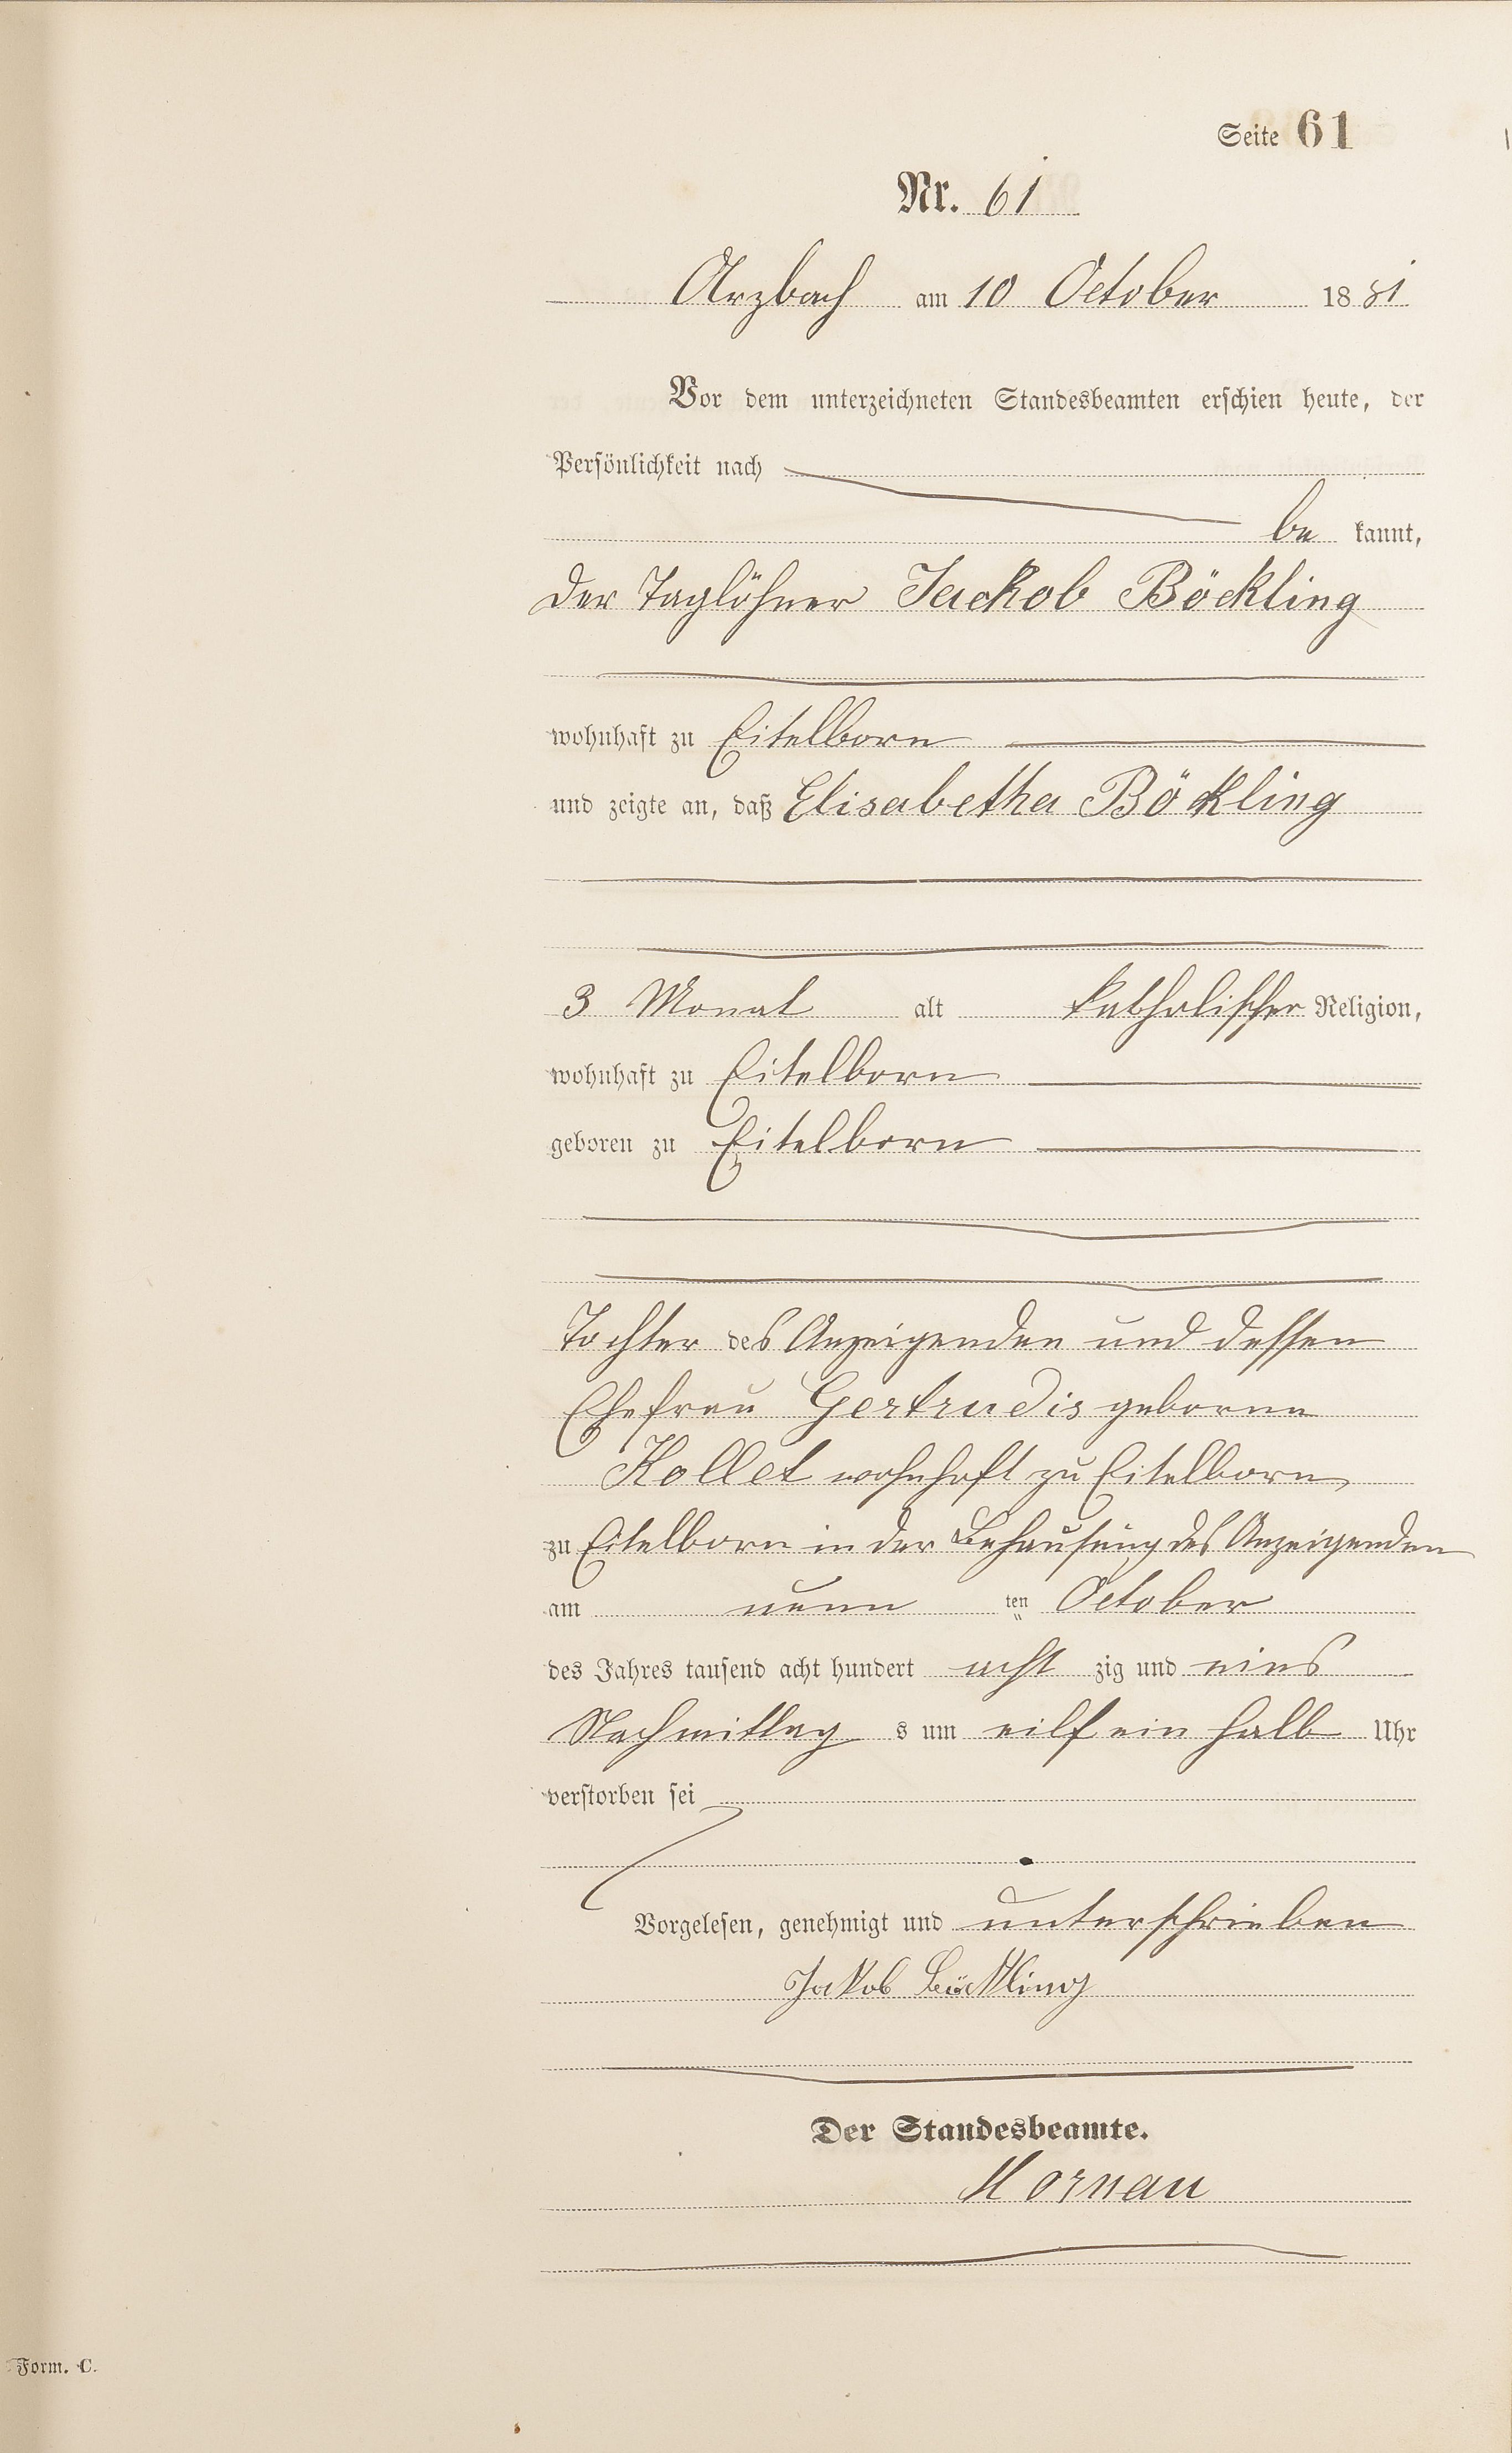 Seite 61
Nr. 61
Arzbach am 10 October 1881
Vor dem unterzeichneten Standesbeamten erschien heute, der
Persönlichkeit nach
be kannt,
der Taglöhner Jackob Böckling
wohnhaft zu Eitelborn
und zeigte an, daß Elisabetha Böckling
3 Monat alt katholischer Religion,
wohnhaft zu Eitelborn
geboren zu Eitelborn
Tochter des Anzeigenden und dessen
Ehefrau Gertrudis geborne
Kollet wohnhaft zu Eitelborn
zu Eitelborn in der Behausung des Anzeigenden
am neun ten October
des Jahres tausend acht hundert acht zig und eins
Nachmittag s um eilf ein halb Uhr
verstorben sei
Vorgelesen, genehmigt und unterschrieben
Jakob Böckling
Der Standesbeamte.
Hornau
Form. C.